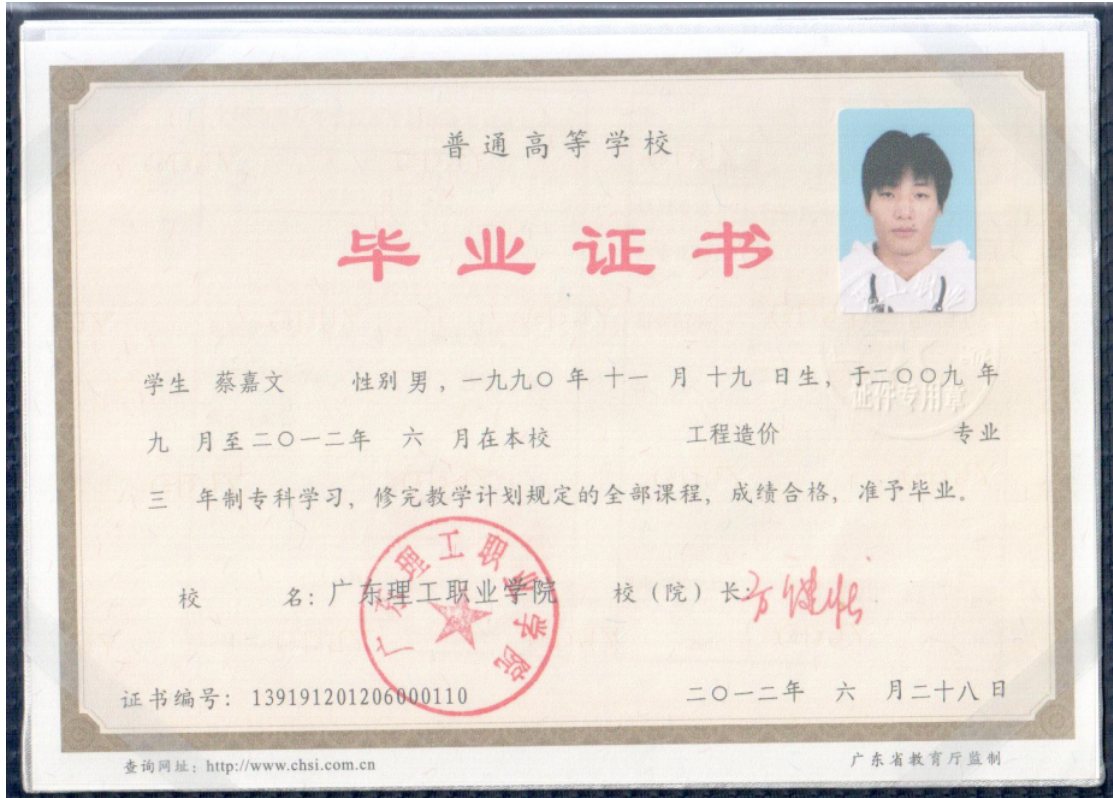 普通高等学校
毕业证书
学生 蔡嘉文 性别 男，一九九〇 年 十一 月 十九 日生，于二〇〇九 年
九 月至二〇一二年 六 月在本校 工程造价 专业
三 年制专科学习，修完教学计划规定的全部课程，成绩合格，准予毕业。
校 名：广东理工职业学院 校（院）长：
广东理工职业学院
证书编号： 139191201206000110 二〇一二年 六 月二十八日
查询网址：http://www.chsi.com.cn 广东省教育厅监制
证件专用章